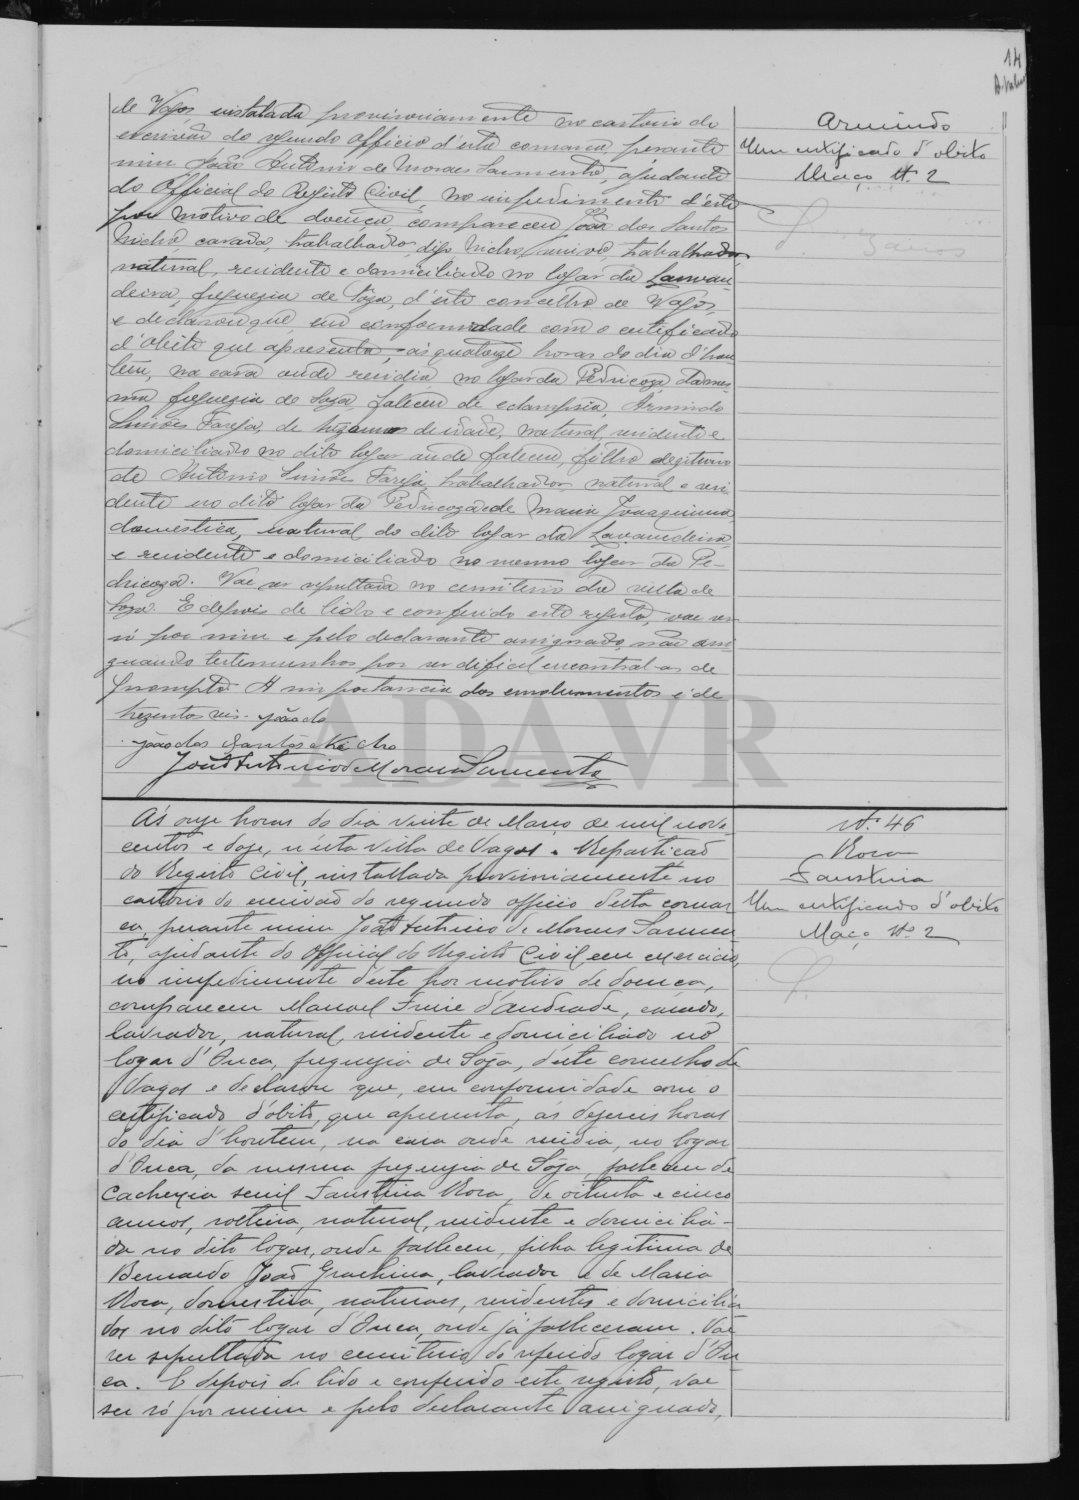 14
de Vagos, installada provisoriamente no cartorio do
escrivão do segundo officio d'esta comarca, perante
mim João Antonio de Moraes Sarmento, ajudante
do Official do Registo Civil, no impedimento d'este
por motivo de doença, compareceu João dos Santos
Nicho, casado, trabalhador, digo Nicho, trabalhador,
natural, residente e domiciliado no logar da Lavan-
deira, freguezia de Soza, d'este concelho de Vagos,
e declarou que, em conformidade com o certificado
d'obito que apresenta, ás quatorze horas do dia d'hon-
tem, na casa onde residia no logar da Pedricoza, da mes-
ma freguezia de Soza falleceu de eclampsia, Armindo
Simões Fareja, de de idade, natural, residente e
domiciliado no dito logar onde faleceu, filho legitimo
de Antonio Simões Fareja, trabalhador natural e resi-
dente no dito logar da Pedricoza e de Maria Joaquina,
domestica, natural do dito logar da Lavandeira
e residente e domiciliado no mesmo logar da Pe-
dricoza. Vae ser sepultada no cemiterio da villa de
Soza. E depois de lido e conferido este registo, vae ser
só por mim e pelo declarante assignado, não assi-
gnando testemunhas por ser dificil encontral-as de
prompto. A importancia dos emolumentos é de
trezentos reis. João do
João dos Santos Nicho
João Antonio de Moraes Sarmento
Armindo
Um certificado d'obito
Maço Nº 2
ADAVR
Ás onze horas do dia vinte de Março de mil nove-
centos e doze, n'esta villa de Vagos e Repartição
do Registo Civil, installada provisoriamente no
cartorio do escrivão do segundo officio desta comar-
ca, perante mim João Antonio de Moraes Sarmen-
to, ajudante do Official do Registo Civil em exercicio,
no impedimento deste por motivo de doença,
compareceu Manoel Freire d'Andrade, casado,
lavrador, natural, residente e domiciliado no
logar d'Ouca, freguezia de Sôza, deste concelho de
Vagos e declarou que, em conformidade com o
certificado d'obito, que apresenta, ás dezeseis horas
do dia d'hontem, na casa onde residia, no logar
d'Ouca, da mesma freguezia de Sôza, falleceu de
cachexia senil Faustina Rosa, de oitenta e cinco
annos, solteira, natural, residente e domicilia-
da no dito logar, onde falleceu, filha legitima de
Bernardo João Grachina, lavrador e de Maria
Rosa, domestica, naturaes, residentes e domicilia-
dos no dito logar d'Ouca, onde já falleceram. Vae
ser sepultada no cemiterio do referido logar d'Ou-
ca. E depois de lido e conferido este registo, vae
ser só por mim e pelo declarante assignado,
Nº 46
Rosa
Faustina
Um certificado d'obito
Maço Nº 2